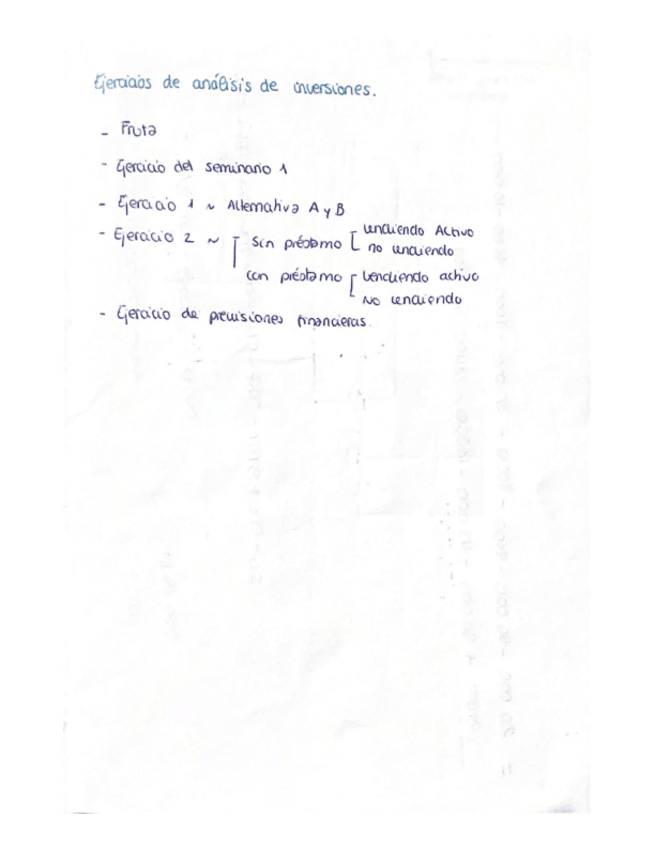 Ejercicios de análisis de inversiones.
- Fruta
- Ejercicio del seminario 1
- Ejercicio 1 ~ Alternativa A y B
- Ejercicio 2 ~ [ Sin préstamo [ vendiendo Activo
no vendiendo
con préstamo [ Vendiendo activo
No vendiendo
- Ejercicio de previsiones financieras.